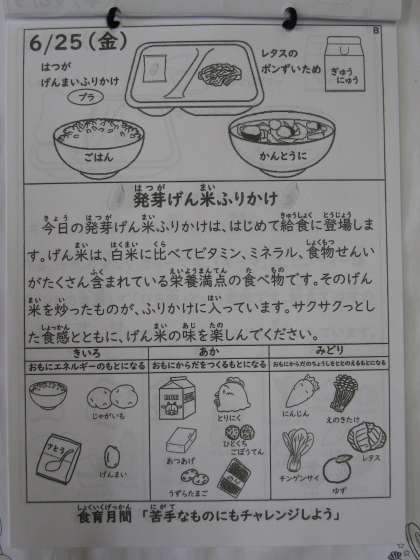 B
6/25（金）
はつが
げんまいふりかけ
プラ
レタスの
ポンずいため
ぎゅう
にゅう
ごはん
かんとうに
発芽げん米ふりかけ
今日の発芽げん米ふりかけは、はじめて給食に登場しま
す。げん米は、白米に比べてビタミン、ミネラル、食物せんい
がたくさん含まれている栄養満点の食べ物です。そのげん
米を炒ったものが、ふりかけに入っています。サクサクっとし
た食感とともに、げん米の味を楽しんでください。
きいろ
おもにエネルギーのもとになる
じゃがいも
さとう
げんまい
あか
おもにからだをつくるもとになる
とりにく
あつあげ
ひとくち
ごぼうてん
うずらたまご
みどり
おもにからだのちょうしをととのえるもとになる
にんじん
えのきたけ
チンゲンサイ
レタス
ゆず
食育月間 「苦手なものにもチャレンジしよう」